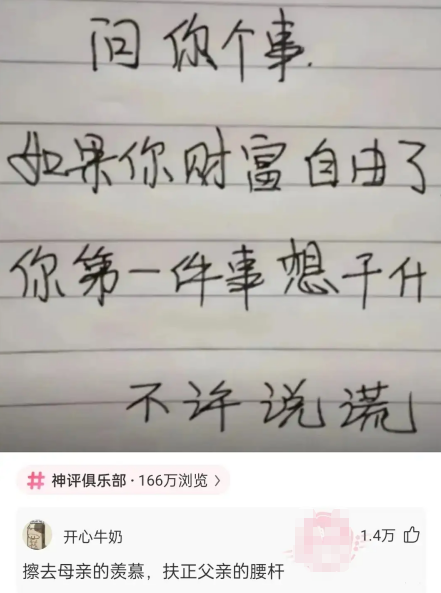 问你个事.
如果你财富自由了
你第一件事想干什
不许说谎
# 神评俱乐部·166万浏览 >
开心牛奶
1.4万
擦去母亲的羡慕，扶正父亲的腰杆